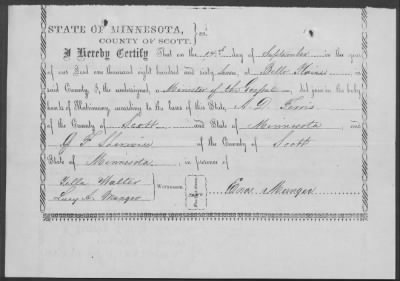 STATE OF MINNESOTA, } ss.
COUNTY OF SCOTT.
I Hereby Certify That on the 14th day of September in the year
of our Lord one thousand eight hundred and sixty seven, at Belle Plaines, in
said County I, the undersigned, a Minister of the Gospel, did join in the holy
bonds of Matrimony, according to the laws of this State, A. D. Ferris
of the County of Scott and State of Minnesota, and
G. F. of the County of Scott
State of Minnesota in presence of
Walter
Lucy S. Munger } Witnesses. Munger